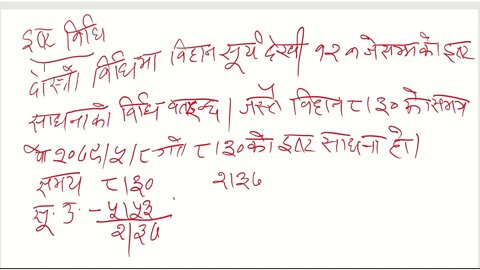 इष्ट विधि
दोस्रो विधिमा विहान सूर्य देखी १२ बजे सम्मको इष्ट
साधनाको विधि बताइन्छ। जस्तै विहान ८।३० को समय
२०७९।५।८ गते ८।३० को इष्ट साधना हो।
समय ८।३० २।३७
सू. उ. - ५।५३
२।३७